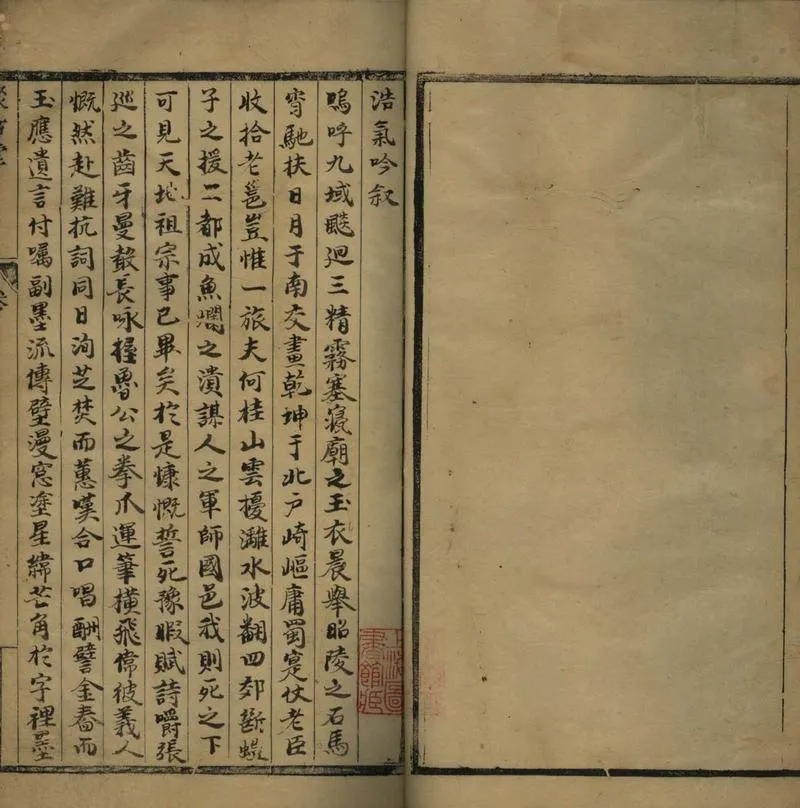 浩氣吟叙
嗚呼九域飈迴三精霧塞寢廟之玉衣晨舉昭陵之石馬
宵馳扶日月于南交畫乾坤于北户崎嶇庸蜀寔仗老臣
收拾老邕豈惟一旅夫何桂山雲擾灕水波翻四郊斷螘
子之援二都成魚爛之潰謀人之軍師國邑我則死之下
可見天地祖宗事已畢矣於是慷慨誓死豫暇賦詩嚼張
廵之齒牙曼敲長咏握魯公之拳爪運筆橫飛偉彼義人
慨然赴難抗詞同日洵芝焚而蕙嘆合口唱酬譬金舂而
玉應遺言付囑副墨流傳壁漫窓塗星緯芒角於字裡墨
上海圖
書館藏